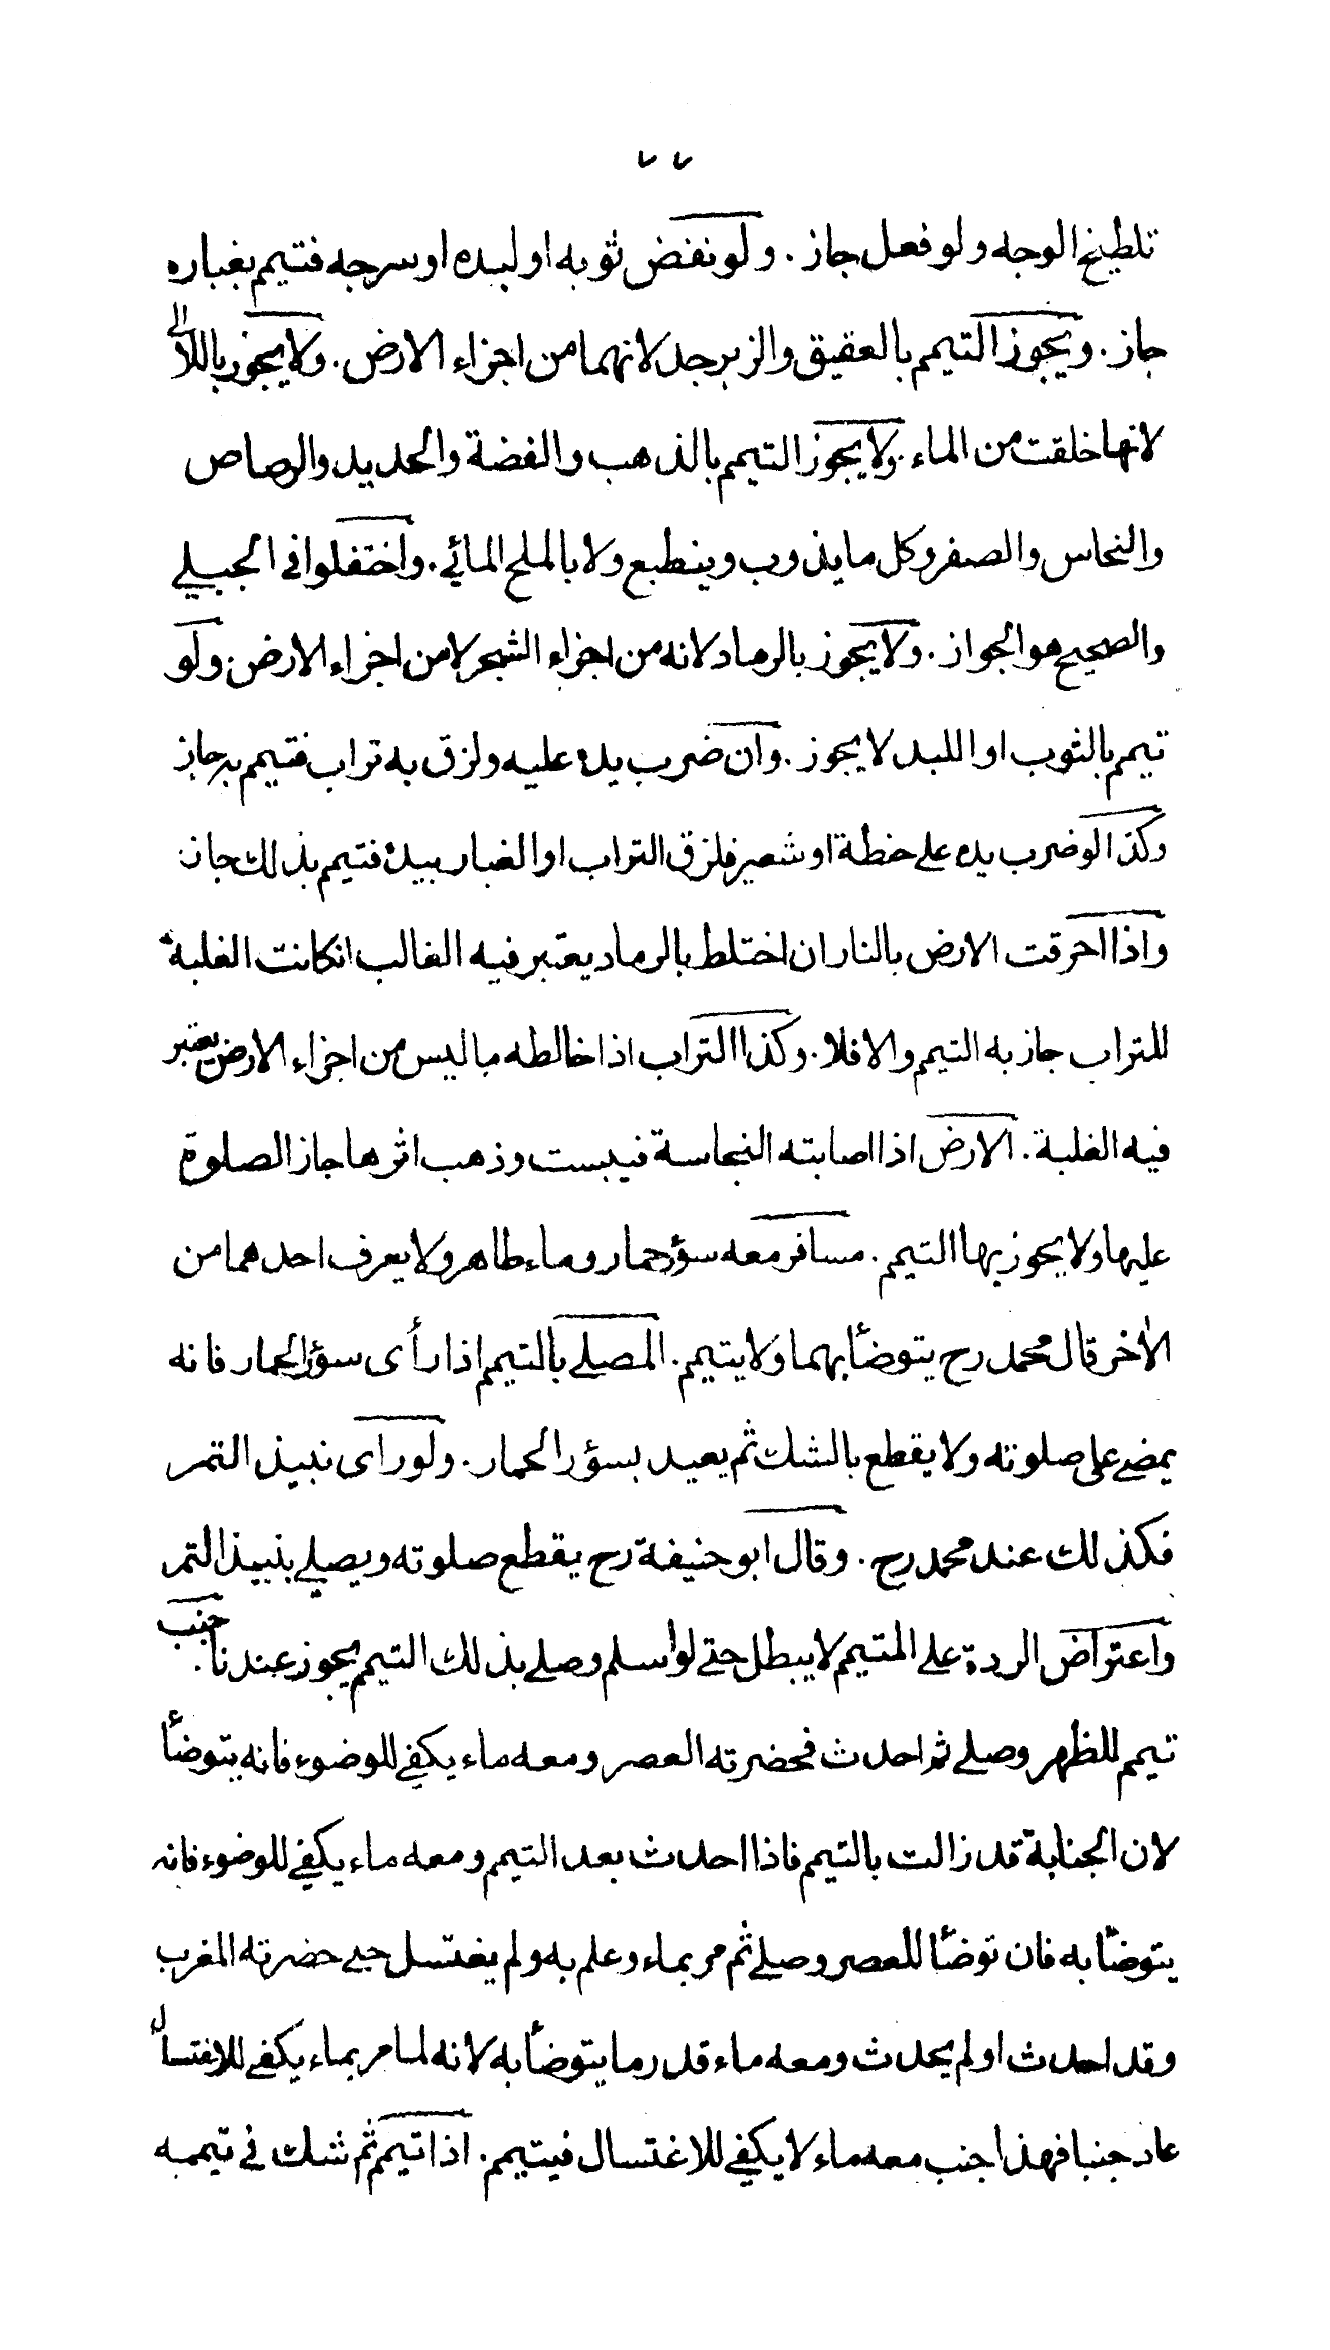 ٧٧
تلطيخ الوجه ولو فعل جاز . ولو نفض ثوبه او لبده او سرجه فتيمم بغباره
جاز . ويجوز التيمم بالعقيق والزبرجد لانهما من اجزاء الارض . ولا يجوز باللآلى
لانها خلقت من الماء . ولا يجوز التيمم بالذهب والفضة والحديد والرصاص
والنحاس والصفر وكل ما يذوب وينطبع ولا بالملح المائي . واختفلوا في الجبلي
والصحيح هو الجواز . ولا يجوز بالرماد لانه من اجزاء الشجر لا من اجزاء الارض . ولو
تيمم بالثوب او اللبد لا يجوز . وان ضرب يده عليه ولزق به تراب فتيمم به جاز
وكذا لو ضرب يده على خطة او شعير فلزق التراب او الغبار بيده فتيمم بذلك جاز .
واذا احرقت الارض بالنار ان اختلط بالرماد يعتبر فيه الغالب انكانت الغلبة
للتراب جاز به التيمم والا فلا . وكذا التراب اذا خالطه ما ليس من اجزاء الارض يعتبر
فيه الغلبة . الارض اذا اصابته النجاسة فيبست وذهب اثرها جاز الصلوة
عليها ولا يجوز بها التيمم . مسافر معه سؤر حمار وماء طاهر ولا يعرف احدهما من
الآخر قال محمد رح يتوضأ بهما ولا يتيمم . المصلي بالتيمم اذا رأى سؤر الحمار فانه
يمضي على صلوته ولا يقطع بالشك ثم يعيد بسؤر الحمار . ولو راى نبيذ التمر
فكذلك عند محمد رح . وقال ابو حنيفة رح يقطع صلوته ويصلي بنبيذ التمر
واعتراض الردة على المتيمم لا يبطل حتى لو اسلم وصلى بذلك التيمم يجوز عندنا . جنب
تيمم للظهر وصلى ثم احدث فحضرته العصر ومعه ماء يكفي للوضوء فانه يتوضأ
لان الجنابة قد زالت بالتيمم فاذا احدث بعد التيمم ومعه ماء يكفي للوضوء فانه
يتوضأ به فان توضأ للعصر وصلى ثم مر بماء وعلم به ولم يغتسل حتى حضرته المغرب
وقد احدث او لم يحدث ومعه ماء قدر ما يتوضأ به لانه لما مر بماء يكفي للاغتسال
عاد جنبا فهذا جنب معه ماء لا يكفي للاغتسال فيتيمم . اذا تيمم ثم شك في تيممه